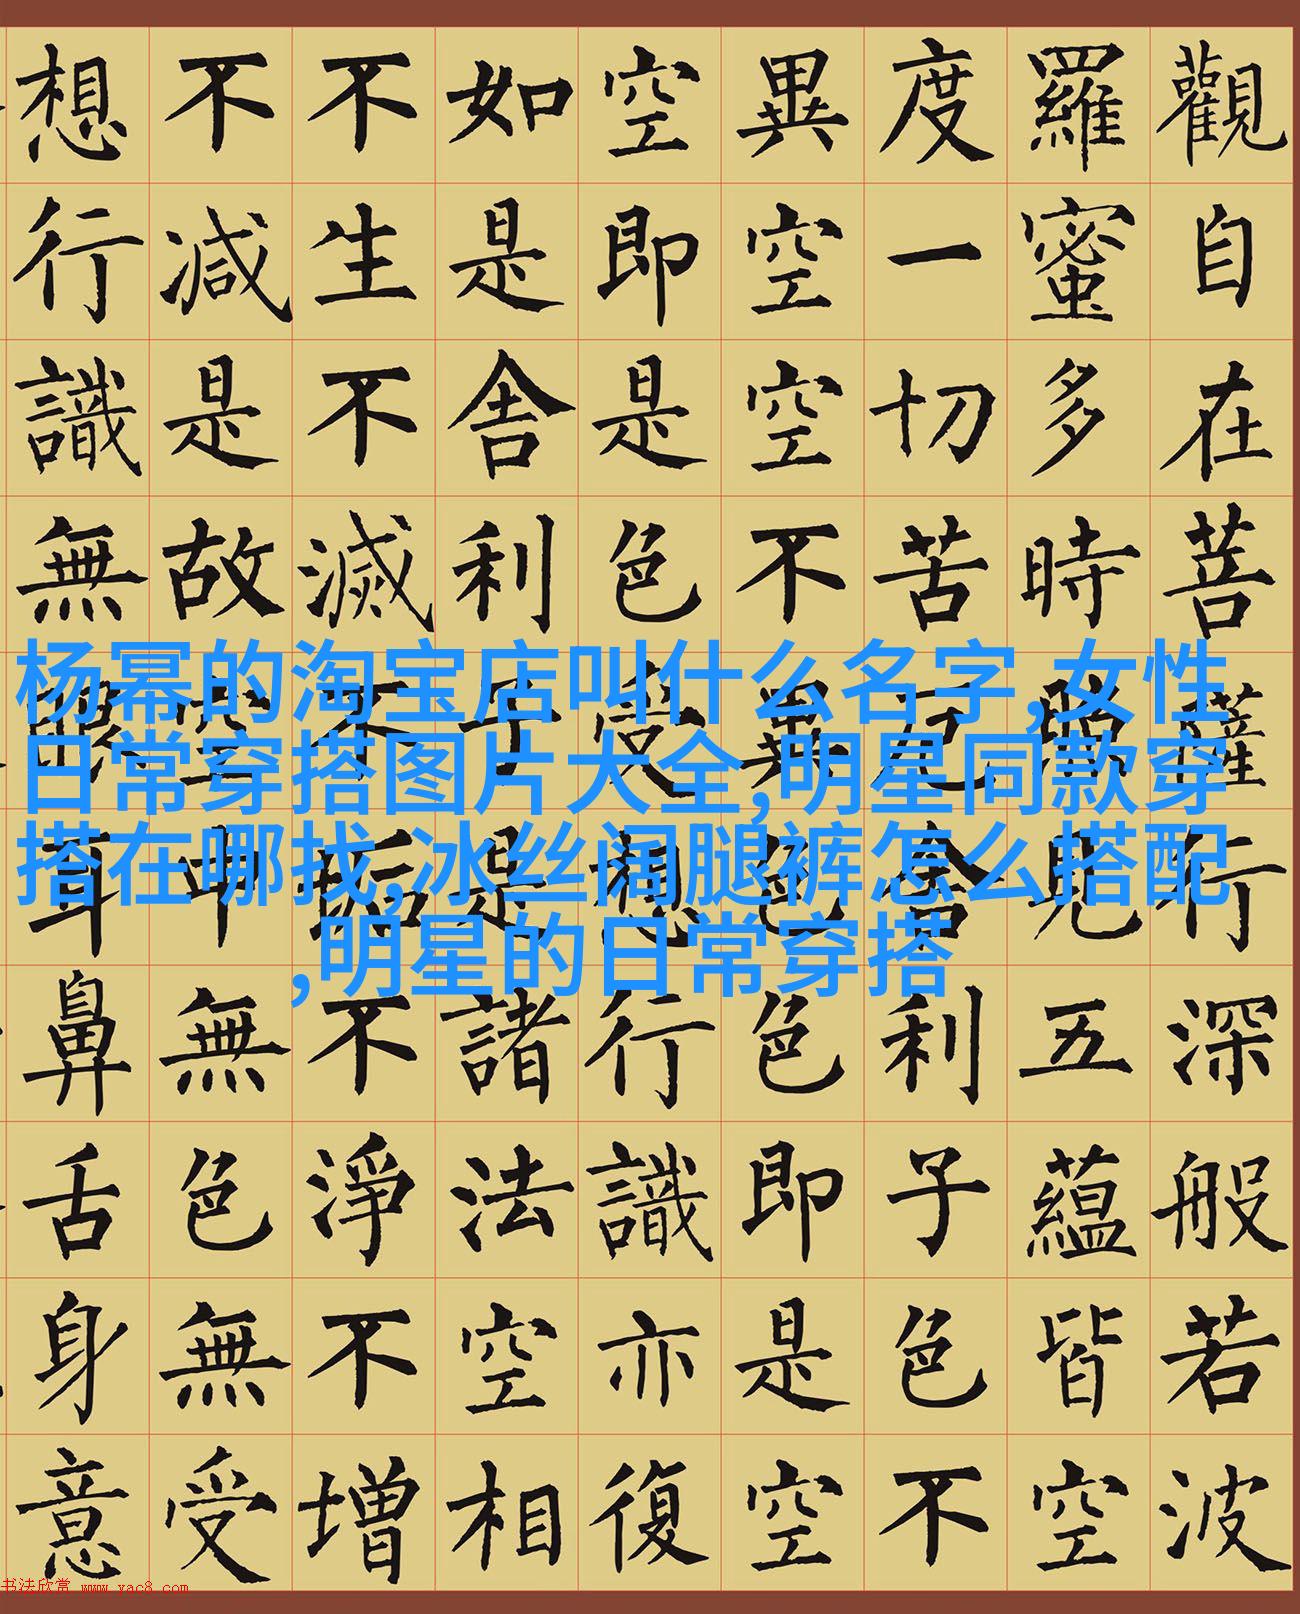 觀自在菩薩行深般若波
羅蜜多時照見五蘊皆空
度一切苦厄舍利子色不
異空空不異色色即是空
空即是色受想行識亦復
如是舍利子是諸法空相
不生不滅不垢不淨不增
不減是故空中無色無受
想行識無眼耳鼻舌身意
杨幂的淘宝店叫什么名字,女性
日常穿搭图片大全,明星同款穿
搭在哪找,冰丝阔腿裤怎么搭配
,明星的日常穿搭
书法欣赏 www.yac8.com